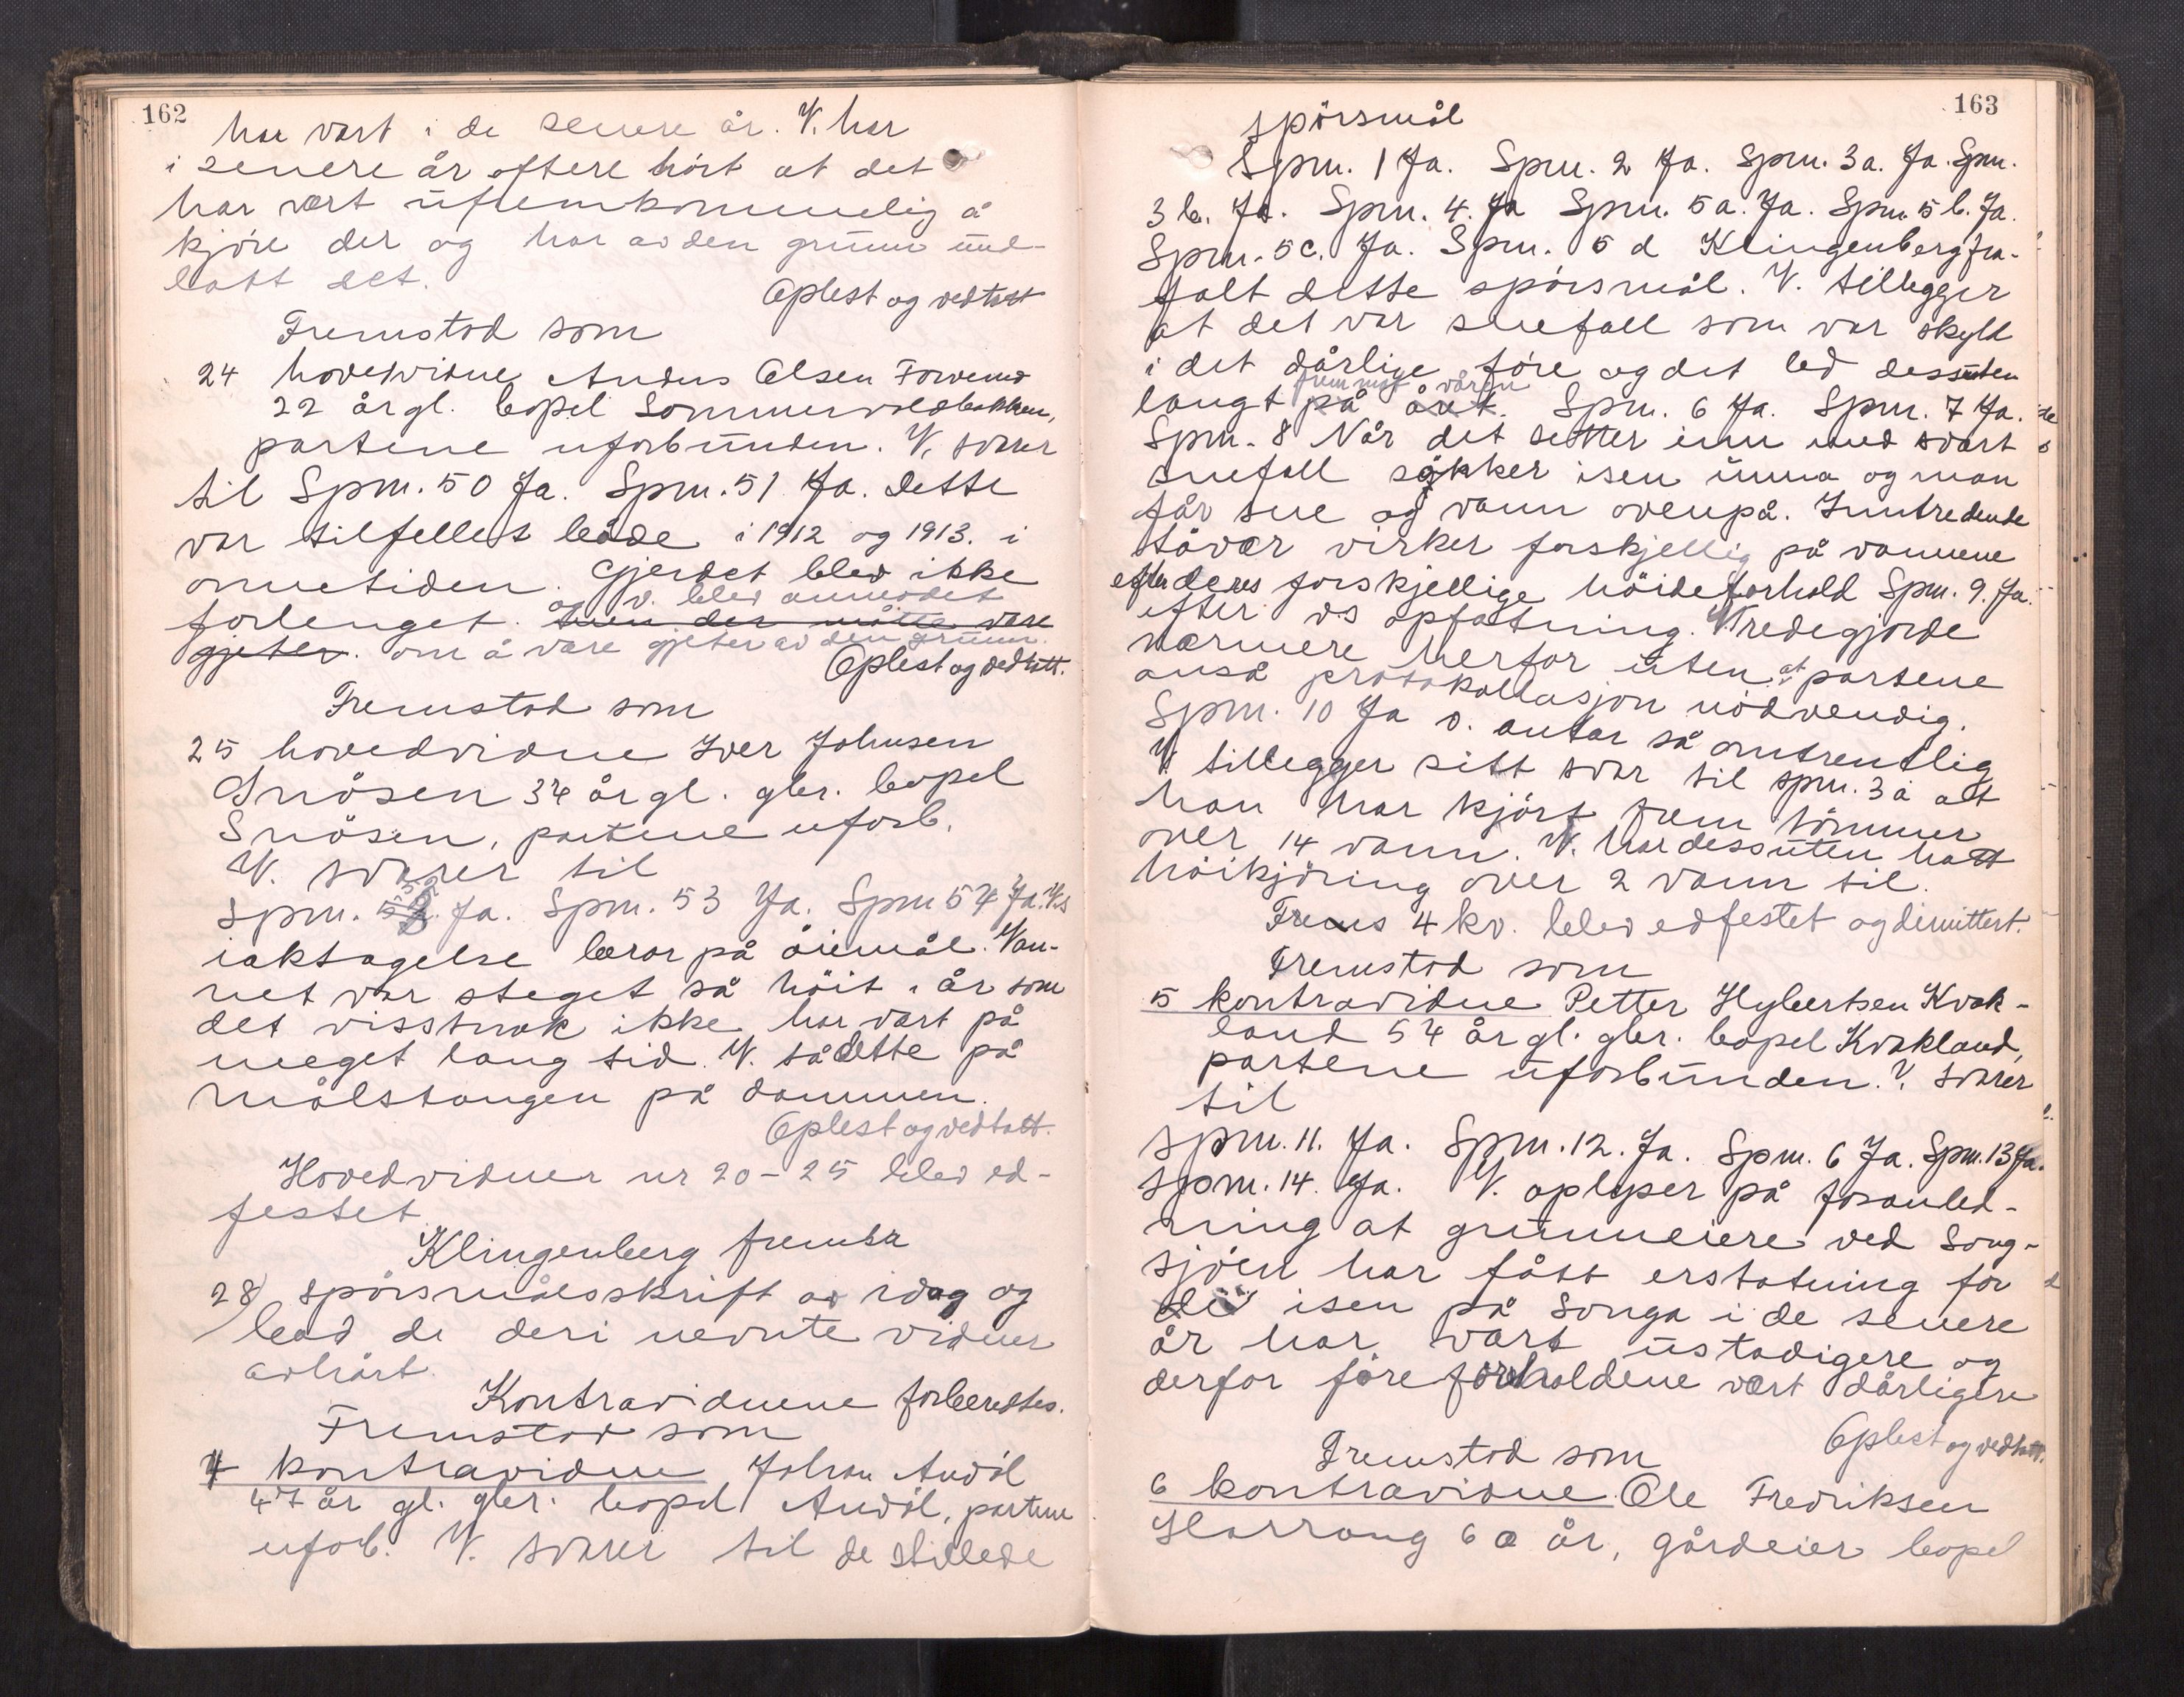 162
har vært i de senere år. V. har
i senere år oftere hört at det
har vært ufremkommelig å
kjöre der og har av den grunn und-
latt det.
Oplest og vedtatt
Fremstod som
24 hovedvidne Anders Olsen
22 år gl. bopel Sommervoldbakken,
partene uforbunden. V. svarer
til Spm. 50 Ja. Spm. 51 Ja. Dette
var tilfellet både i 1912 og 1913. i
onnetiden. Gjerdet blev ikke
og v. blev anmodet
forlenget. men der måtte være
gjeter. om å være gjeter av den grunn.
Oplest og vedtatt.
Fremstod som
25 hovedvidne Iver Johnsen
Snösen 34 år gl. gbr. bopel
Snösen, partene uforb.
V. svarer til
Spm. 52 Ja. Spm. 53 Ja. Spm 54 Ja. V.s
iaktagelse beror på öiemål. Van-
net var steget så höit i år som
det visstnok ikke har vært på
meget lang tid. V. så dette på
målstangen på dammen.
Oplest og vedtatt.
Hovedvidner nr 20-25 blev ed-
festet
Klingenberg fremla
28) spörsmålsskrift av idag og
bad de deri nevnte vidner
avhört.
Kontravidnene forberedtes.
Fremstod som
4 kontravidne Johan Andöl
47 år gl. gbr. bopel Andöl, partene
uforb. V. svarer til de stillede
163
spörsmål
Spm. 1 Ja. Spm. 2 Ja. Spm. 3a. Ja. Spm.
3 b. Ja. Spm. 4. Ja Spm. 5a. Ja. Spm 5 b. Ja.
Spm. 5c. Ja. Spm. 5 d Klingenberg fra-
falt dette spörsmål. V. tillegger
at det var snefall som var skyld
i det dårlige före og det led dessuten
frem mot våren
langt på året. Spm. 6 Ja. Spm. 7 Ja.
Spm. 8 Når det setter inn med svært
snefall sökker isen unna og man
får sne og vann ovenpå. Inntredende
tövær virker forskjellig på vannene
efter deres forskjellige höideforhold Spm. 9. Ja.
efter v.s opfatning. V. redegjorde
nærmere herfor uten at partene
anså protokollasjon nödvendig.
Spm. 10 Ja v. antar så omtrentlig
V. tillegger sitt svar til spm. 3 a at
han har kjört frem tömmer
over 14 vann. V. har dessuten hatt
höikjöring over 2 vann til.
Frems 4 kv. blev edfestet og dimittert.
Fremstod som
5 kontravidne Petter Hybertsen Kvak-
land 54 år gl. gbr. bopel Kvakland,
partene uforbunden. V. svarer
til
Spm. 11. Ja. Spm. 12. Ja. Spm. 6 Ja. Spm. 13 Ja.
Spm. 14. Ja. V. oplyser på foranled-
ning at grunneiere ved Song-
sjöen har fått erstatning for
di isen på Songa i de senere
år har vært ustadigere og
derfor före forholdene vært dårligere
Oplest og vedtatt.
Fremstod som
6 kontravidne Ole Fredriksen
Harrang 60 år, gårdeier bopel